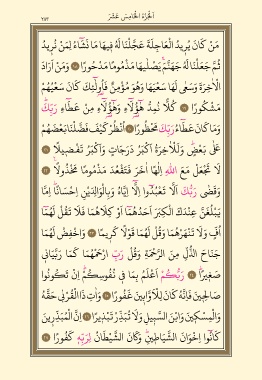 اَلْجُزْءُ الْخَامِسَ عَشَرَ ٢٨٣
مَنْ كَانَ يُرِيدُ الْعَاجِلَةَ عَجَّلْنَا لَهُ فِيهَا مَا نَشَٓاءُ لِمَنْ نُرِيدُ
ثُمَّ جَعَلْنَا لَهُ جَهَنَّمَ يَصْلٰيهَا مَذْمُومًا مَدْحُورًا ۝١٨ وَمَنْ اَرَادَ
الْاٰخِرَةَ وَسَعٰى لَهَا سَعْيَهَا وَهُوَ مُؤْمِنٌ فَاُو۬لٰٓئِكَ كَانَ سَعْيُهُمْ
مَشْكُورًا ۝١٩ كُلًّا نُمِدُّ هٰٓؤُ۬لَٓاءِ وَهٰٓؤُ۬لَٓاءِ مِنْ عَطَٓاءِ رَبِّكَ
وَمَا كَانَ عَطَٓاءُ رَبِّكَ مَحْظُورًا ۝٢٠ اُنْظُرْ كَيْفَ فَضَّلْنَا بَعْضَهُمْ
عَلٰى بَعْضٍ وَلَلْاٰخِرَةُ اَكْبَرُ دَرَجَاتٍ وَاَكْبَرُ تَفْضِيلًا ۝٢١
لَا تَجْعَلْ مَعَ اللّٰهِ اِلٰهًا اٰخَرَ فَتَقْعُدَ مَذْمُومًا مَخْذُولًا ۝٢٢
وَقَضٰى رَبُّكَ اَلَّا تَعْبُدُٓوا اِلَّٓا اِيَّاهُ وَبِالْوَالِدَيْنِ اِحْسَانًا اِمَّا
يَبْلُغَنَّ عِنْدَكَ الْكِبَرَ اَحَدُهُمَٓا اَوْ كِلَاهُمَا فَلَا تَقُلْ لَهُمَٓا
اُفٍّ وَلَا تَنْهَرْهُمَا وَقُلْ لَهُمَا قَوْلًا كَرِيمًا ۝٢٣ وَاخْفِضْ لَهُمَا
جَنَاحَ الذُّلِّ مِنَ الرَّحْمَةِ وَقُلْ رَبِّ ارْحَمْهُمَا كَمَا رَبَّيَانِي
صَغِيرًا ۝٢٤ رَبُّكُمْ اَعْلَمُ بِمَا فِي نُفُوسِكُمْ اِنْ تَكُونُوا
صَالِحِينَ فَاِنَّهُ كَانَ لِلْاَوَّابِينَ غَفُورًا ۝٢٥ وَاٰتِ ذَا الْقُرْبٰى حَقَّهُ
وَالْمِسْكِينَ وَابْنَ السَّبِيلِ وَلَا تُبَذِّرْ تَبْذِيرًا ۝٢٦ اِنَّ الْمُبَذِّرِينَ
كَانُٓوا اِخْوَانَ الشَّيَاطِينِ وَكَانَ الشَّيْطَانُ لِرَبِّهِ كَفُورًا ۝٢٧